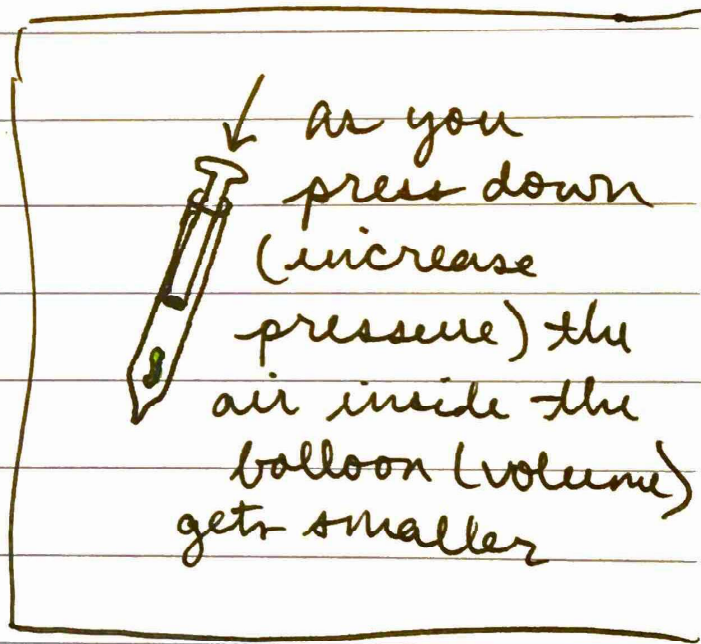 as you
press down
(increase
pressure) the
air inside the
balloon (volume)
gets smaller